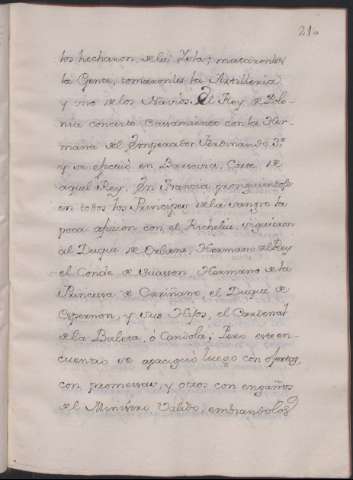 21.
los hecharon, de la Isla; mataronles
la Gente, tomaronles la Artilleria,
y uno de los Navios. El Rey de Polo-
nia concertò Casamiento con la Her-
mana del Emperador Ferdinando 3º
y se efectuò en Varsovia, Corte de
aquel Rey. En Francia prosiguiendose
en todos los Principes de la sangre la
poca aficion con el Richelieu, siguieron
al Duque de Orliens, Hermano del Rey
el Conde de Suason, Hermano de la
Princesa de Cariñano, el Duque de
Espernon, y sus Hijos, el Cardenal
de la Baleta, ò Candola; Pero este en-
cuentro se apaciguò luego con ofertas,
con promesas, y otros con engaños
del Ministro Valido, embiandolos